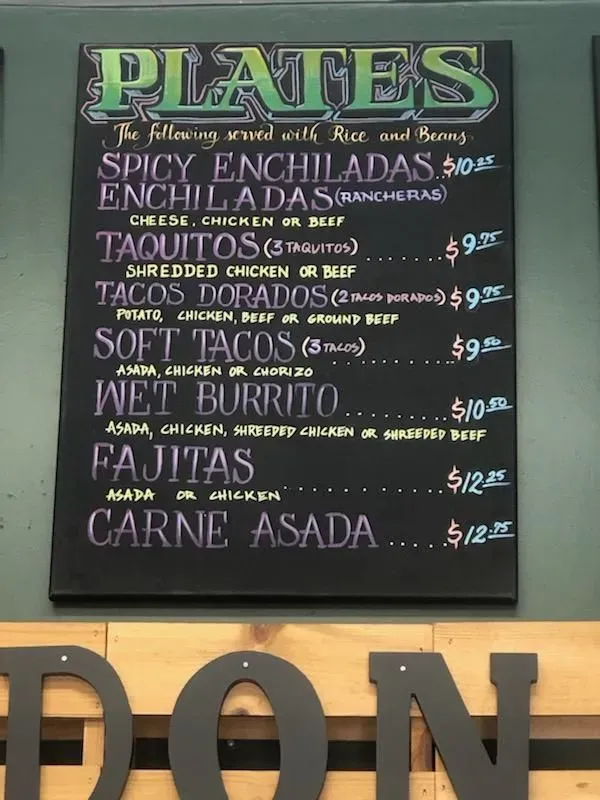 PLATES
The following served with Rice and Beans
SPICY ENCHILADAS..$10.25
ENCHILADAS (RANCHERAS)
CHEESE, CHICKEN OR BEEF
TAQUITOS (3 TAQUITOS) ....... $9.75
SHREDDED CHICKEN OR BEEF
TACOS DORADOS (2 TACOS DORADOS) $9.75
POTATO, CHICKEN, BEEF OR GROUND BEEF
SOFT TACOS (3 TACOS) ........... $9.50
ASADA, CHICKEN OR CHORIZO
WET BURRITO ......... $10.50
ASADA, CHICKEN, SHREEDED CHICKEN OR SHREEDED BEEF
FAJITAS ............... $12.25
ASADA OR CHICKEN
CARNE ASADA ..... $12.75
DON